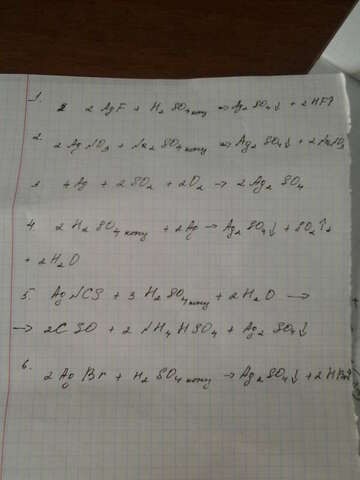 1. 2 AgF + H2SO4 конц → Ag2SO4↓ + 2HF↑
2. 2 AgNO3 + Na2SO4 конц → Ag2SO4↓ + 2NaNO3
3. 4Ag + 2SO2 + 2O2 → 2Ag2SO4
4. 2H2SO4 конц + 2Ag → Ag2SO4↓ + SO2↑ +
+ 2H2O
5. AgNCS + 3H2SO4 конц + 2H2O →
→ 2CSO + 2NH4HSO4 + Ag2SO4↓
6. 2AgBr + H2SO4 конц → Ag2SO4↓ + 2HBr↑